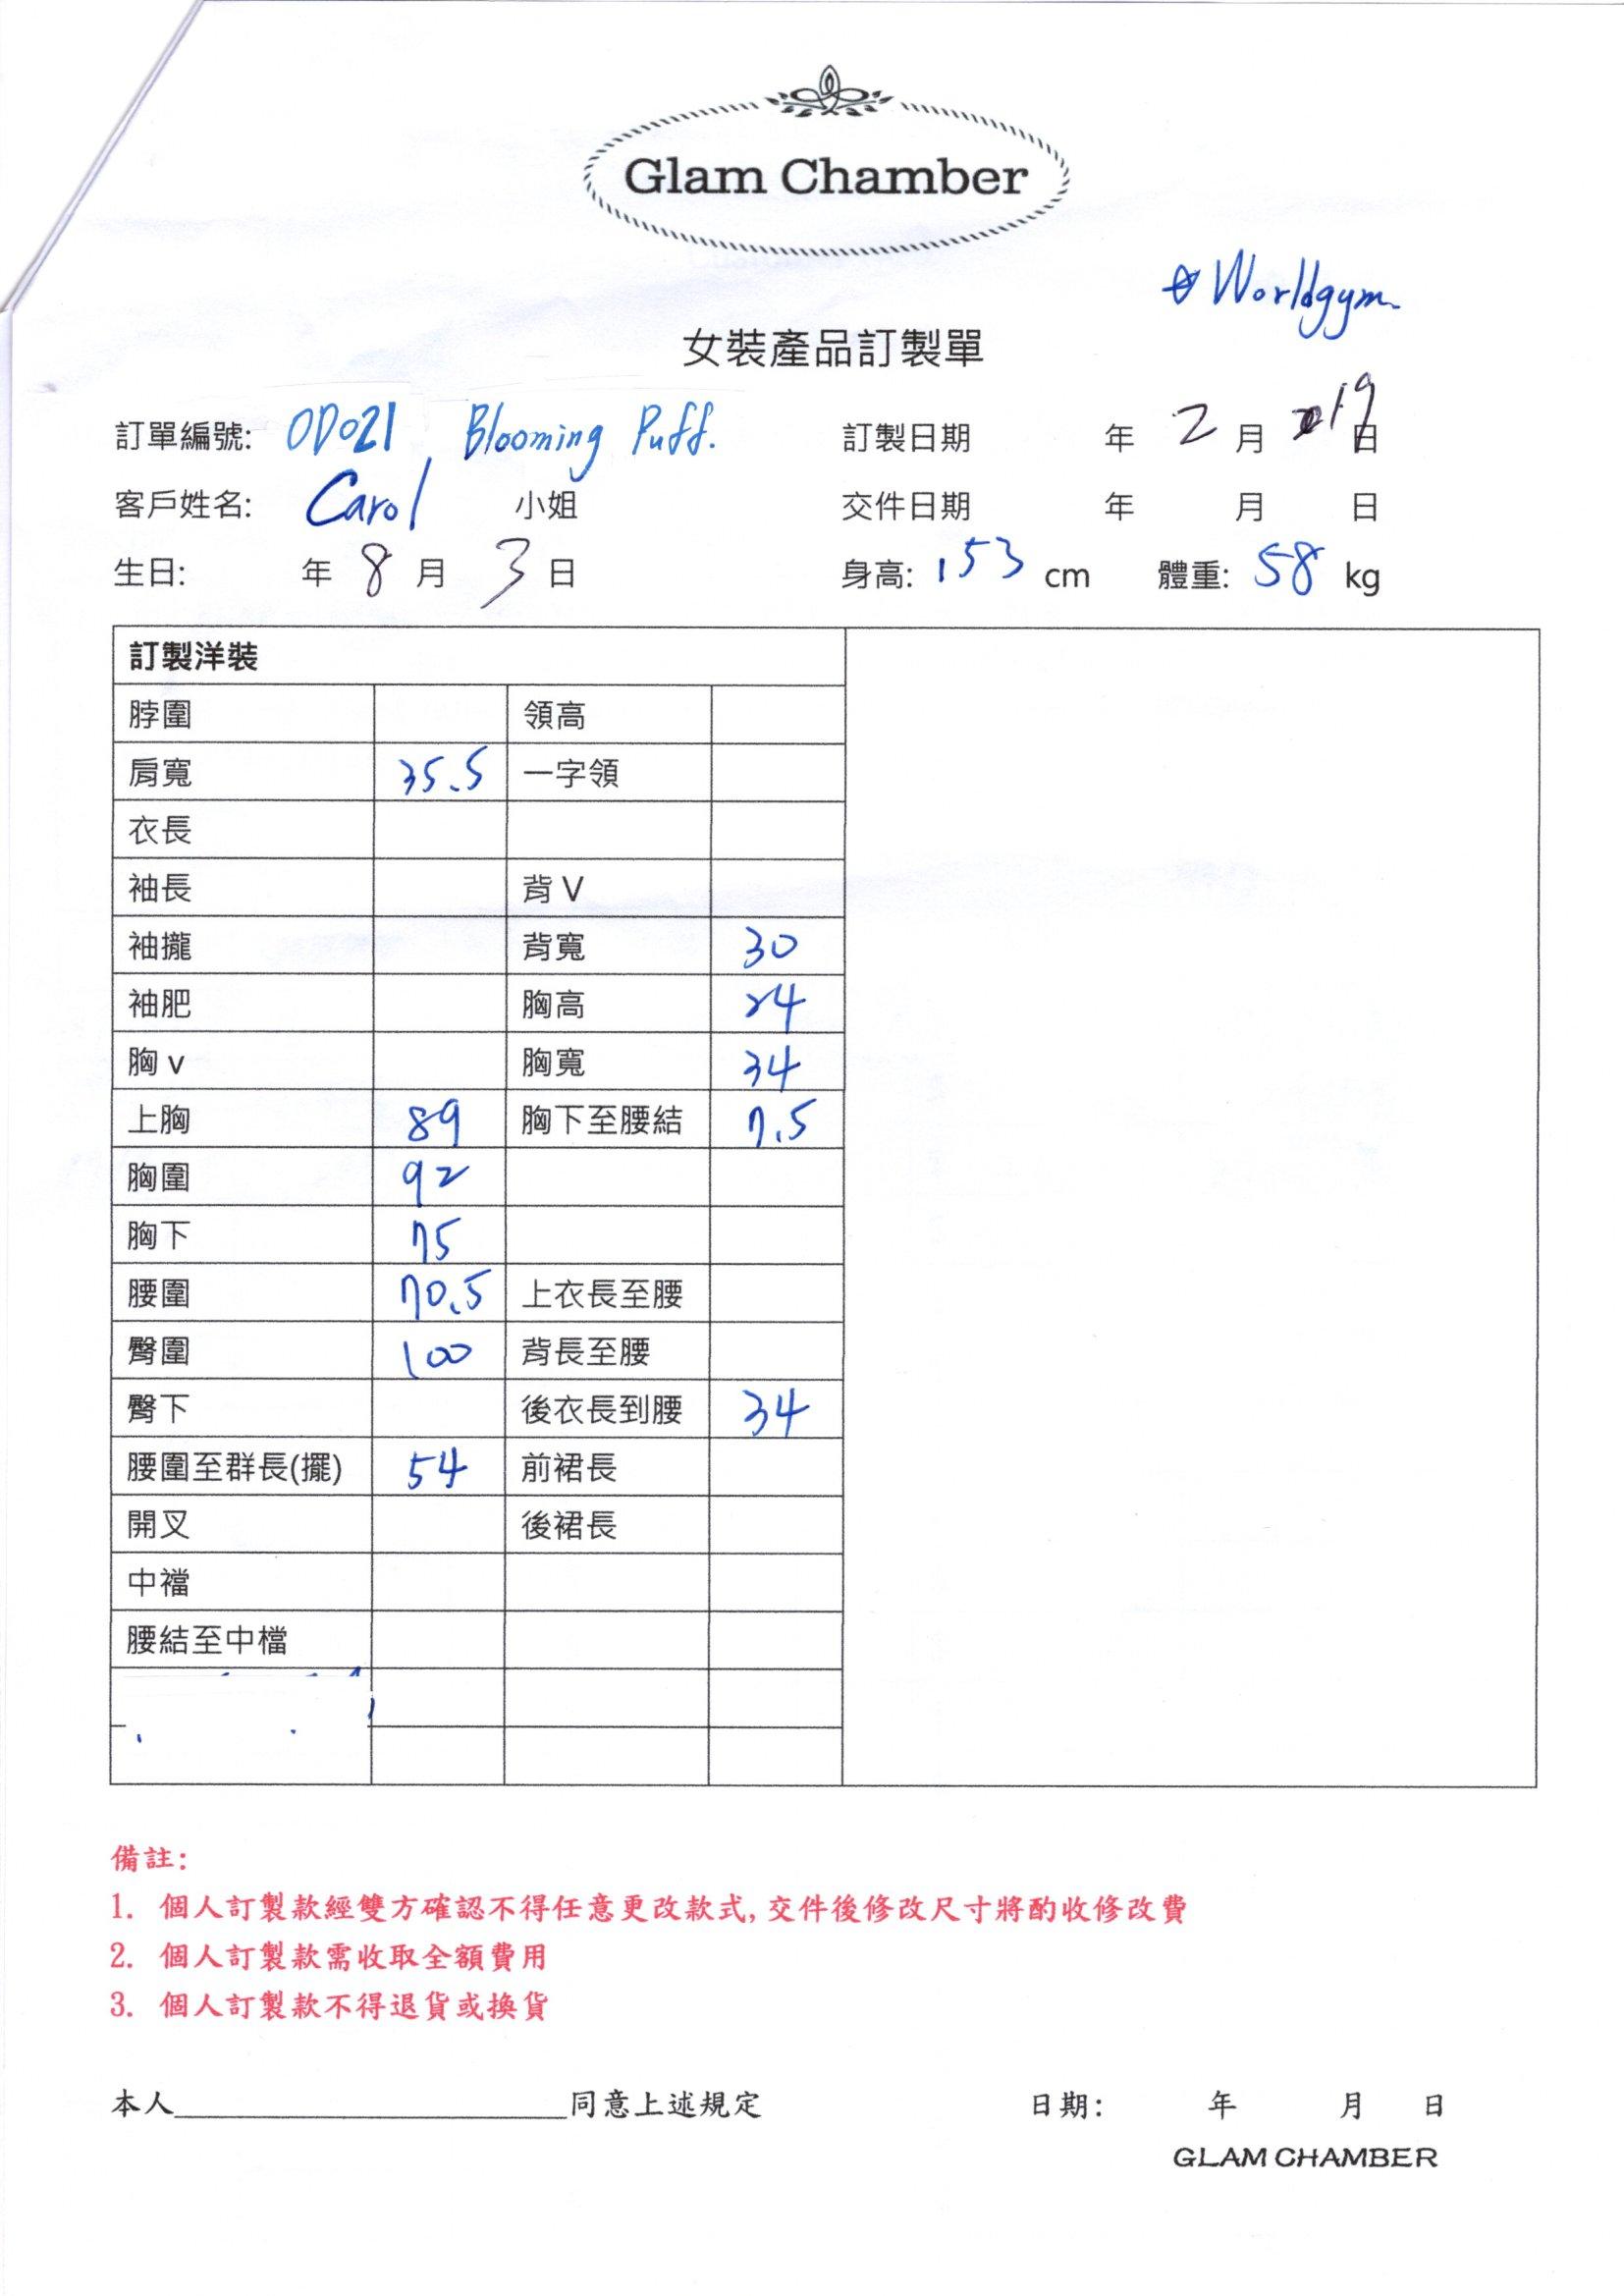 Glam Chamber
☆Worldgym.
女裝產品訂製單
訂單編號: OD021 Blooming Puff. 訂製日期 年 2 月 19 日
客戶姓名: Carol 小姐 交件日期 年 月 日
生日: 年 8 月 3 日 身高: 153 cm 體重: 58 kg
訂製洋裝
脖圍 領高
肩寬 35.5 一字領
衣長
袖長 背 V
袖攏 背寬 30
袖肥 胸高 24
胸 v 胸寬 34
上胸 89 胸下至腰結 7.5
胸圍 92
胸下 75
腰圍 70.5 上衣長至腰
臀圍 100 背長至腰
臀下 後衣長到腰 34
腰圍至群長(擺) 54 前裙長
開叉 後裙長
中襠
腰結至中檔
備註:
1. 個人訂製款經雙方確認不得任意更改款式,交件後修改尺寸將酌收修改費
2. 個人訂製款需收取全額費用
3. 個人訂製款不得退貨或換貨
本人________________同意上述規定 日期: 年 月 日
GLAM CHAMBER